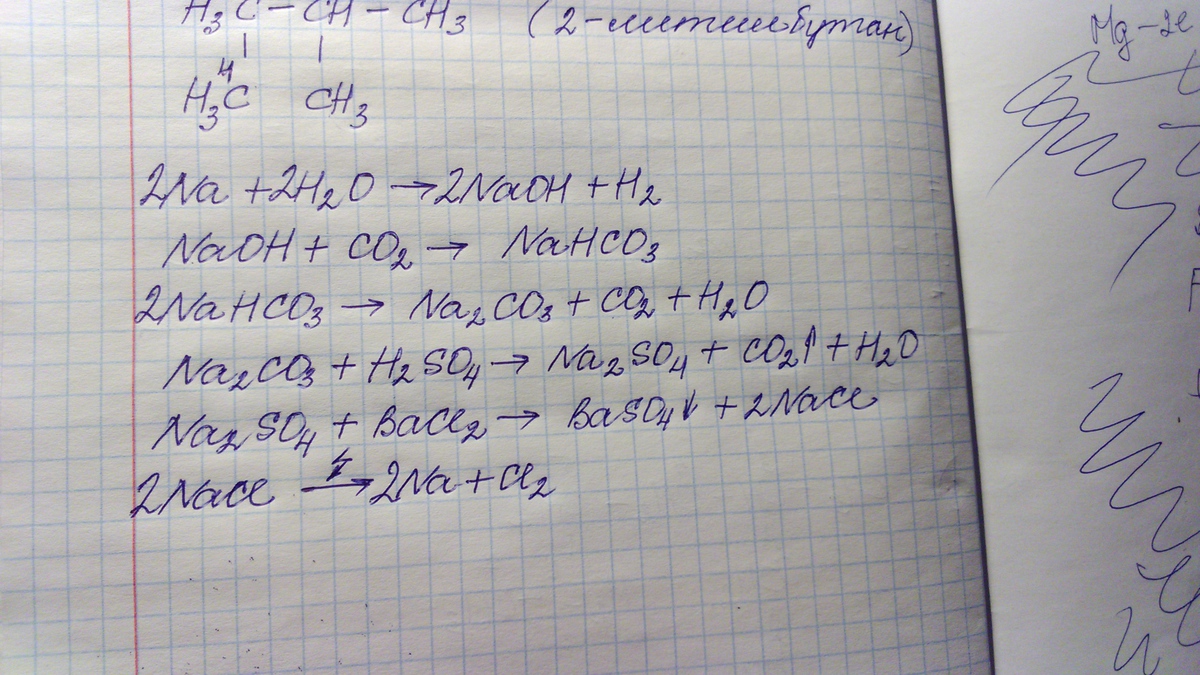 H₃C – CH – CH₃ (2-метилбутан)
4
H₃C CH₃
Mg-2e
2Na + 2H₂O → 2NaOH + H₂
NaOH + CO₂ → NaHCO₃
2NaHCO₃ → Na₂CO₃ + CO₂ + H₂O
Na₂CO₃ + H₂SO₄ → Na₂SO₄ + CO₂↑ + H₂O
Na₂SO₄ + BaCl₂ → BaSO₄↓ + 2NaCl
2NaCl → 2Na + Cl₂